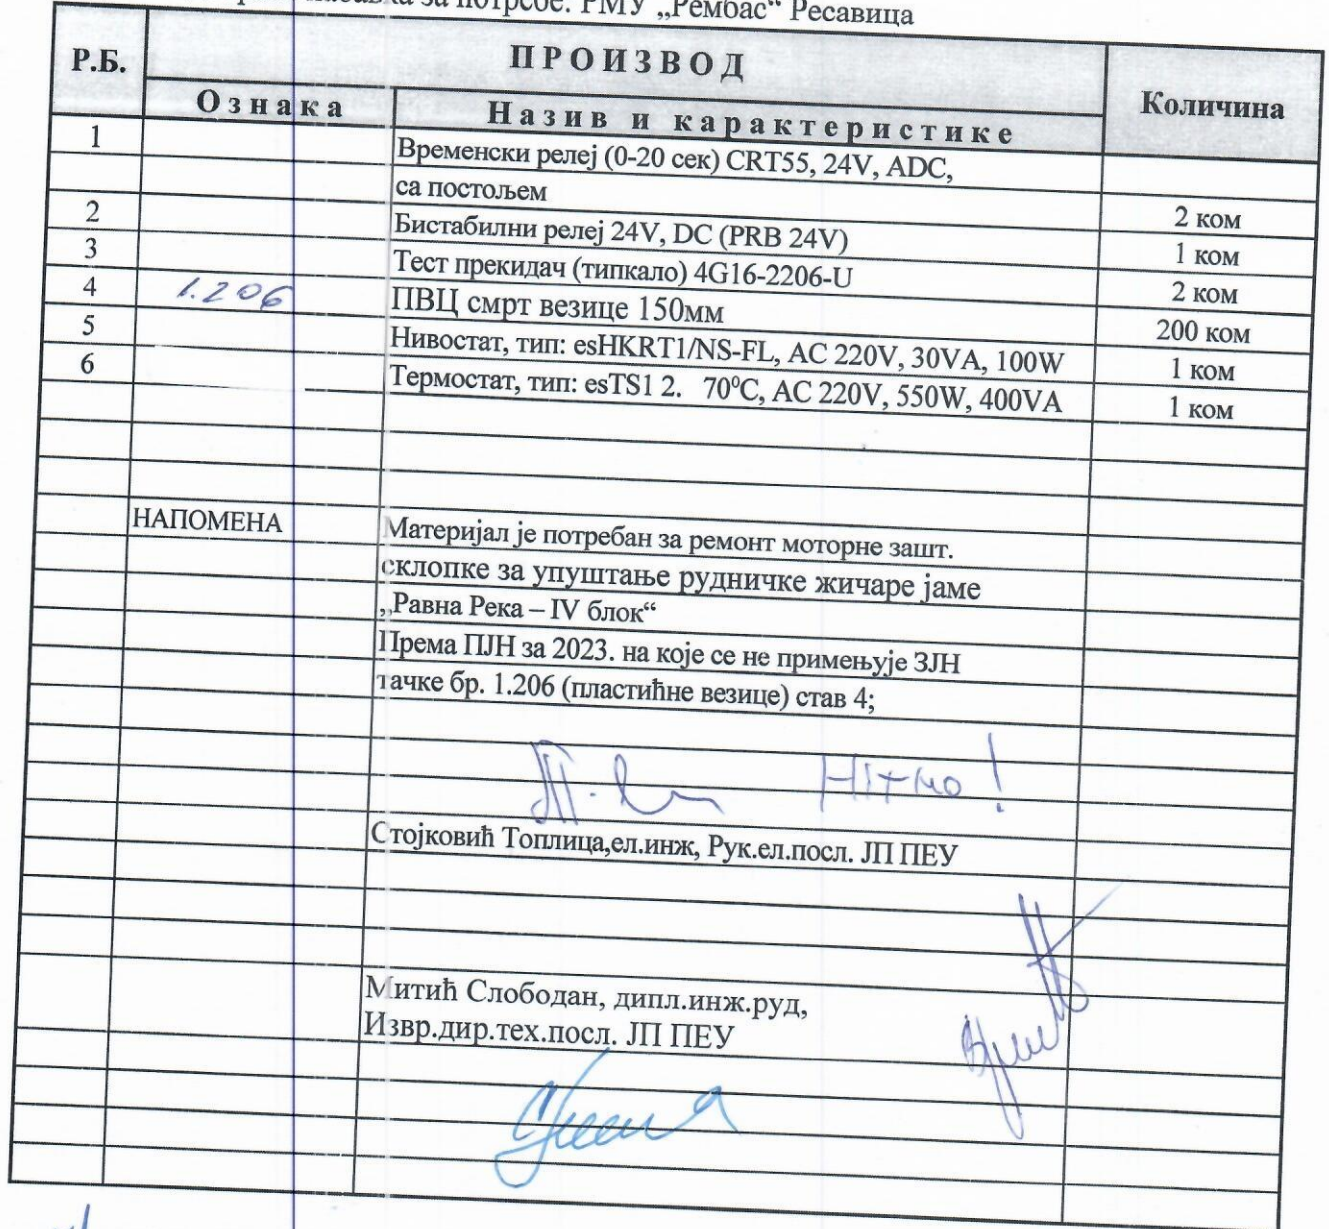 за потребе: РМУ „Рембас“ Ресавица
Р.Б. ПРОИЗВОД Количина
Ознака Назив и карактеристике
1 Временски релеј (0-20 сек) CRT55, 24V, ADC,
са постољем 2 ком
2 Бистабилни релеј 24V, DC (PRB 24V) 1 ком
3 Тест прекидач (типкало) 4G16-2206-U 2 ком
4 1.206 ПВЦ смрт везице 150мм 200 ком
5 Нивостат, тип: esHKRT1/NS-FL, AC 220V, 30VA, 100W 1 ком
6 Термостат, тип: esTS1 2. 70⁰C, AC 220V, 550W, 400VA 1 ком
НАПОМЕНА Материјал је потребан за ремонт моторне зашт.
склопке за упуштање рудничке жичаре јаме
„Равна Река – IV блок“
Према ПЈН за 2023. на које се не примењује ЗЈН
тачке бр. 1.206 (пластићне везице) став 4;
Hitno!
Стојковић Топлица,ел.инж, Рук.ел.посл. ЈП ПЕУ
Митић Слободан, дипл.инж.руд,
Извр.дир.тех.посл. ЈП ПЕУ